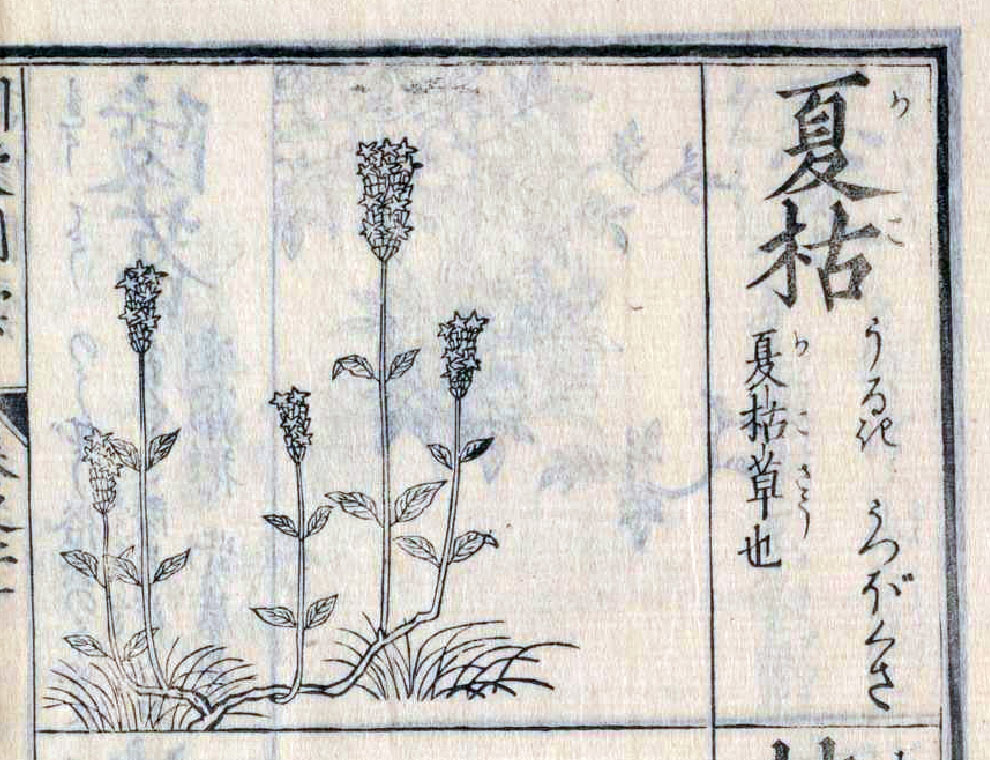 夏枯
か こ
うるき うつぼくさ
夏枯草也
か こ さう